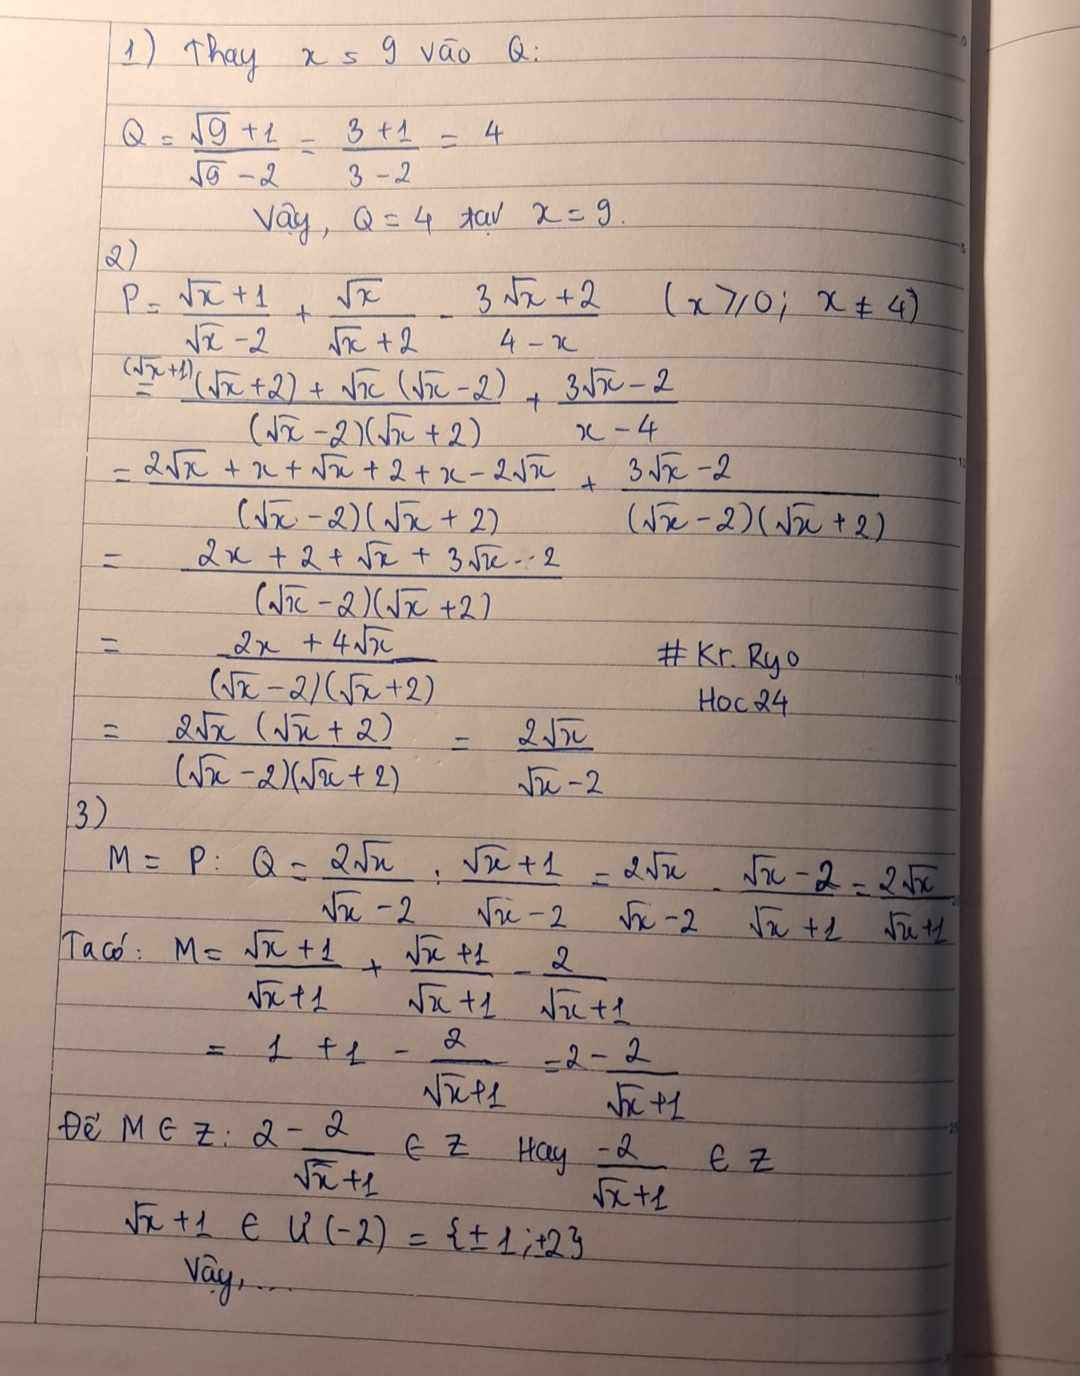 1) Thay x = 9 vào Q:
Q = (√9 + 1)/(√9 - 2) = (3 + 1)/(3 - 2) = 4
Vậy, Q = 4 tại x = 9.
2)
P = (√x + 1)/(√x - 2) + √x/(√x + 2) - (3√x + 2)/(4 - x) (x ⩾ 0; x ≠ 4)
= ((√x+1)(√x + 2) + √x (√x - 2))/((√x - 2)(√x + 2)) + (3√x - 2)/(x - 4)
= (2√x + x + √x + 2 + x - 2√x)/((√x - 2)(√x + 2)) + (3√x - 2)/((√x - 2)(√x + 2))
= (2x + 2 + √x + 3√x - 2)/((√x - 2)(√x + 2))
= (2x + 4√x)/((√x - 2)(√x + 2))
# Kr. Ryo
Hoc24
= (2√x (√x + 2))/((√x - 2)(√x + 2)) = 2√x/(√x - 2)
3)
M = P : Q = 2√x/(√x - 2) : (√x + 1)/(√x - 2) = 2√x/(√x - 2) . (√x - 2)/(√x + 1) = 2√x/(√x + 1)
Ta có: M = (√x + 1)/(√x + 1) + (√x + 1)/(√x + 1) - 2/(√x + 1)
= 1 + 1 - 2/(√x + 1) = 2 - 2/(√x + 1)
Để M ∈ Z: 2 - 2/(√x + 1) ∈ Z Hay -2/(√x + 1) ∈ Z
√x + 1 ∈ Ư(-2) = {±1; ±2}
Vậy,...